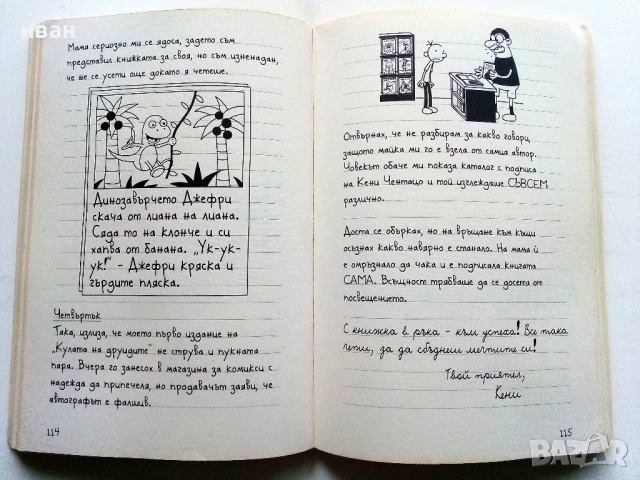 иван
Мама сериозно ми се ядоса, задето съм
представил книжката за своя, но съм изненадан,
че не се усети още докато я четеше.
Динозавърчето Джефри
скача от лиана на лиана.
Сяда то на клонче и си
хапва от банана. „Ук-ук-
ук!" - Джефри кряска и
гърдите пляска.
Четвъртък
Така, излиза, че моето първо издание на
„Кулата на друидите" не струва и пукната
пара. Вчера го занесох в магазина за комикси с
надежда да припечеля, но продавачът заяви, че
автографът е фалшив.
114
Отвърнах, че не разбирам за какво говори,
защото майка ми го е взела от самия автор.
Човекът обаче ми показа каталог с подписа
на Кени Чентаццо и той изглеждаше СЪВСЕМ
различно.
Доста се обърках, но на връщане към къщи
осъзнах какво навярно е станало. На мама ѝ
е омръзнало да чака и е подписала книгата
САМА. Всъщност трябваше да се досетя от
посвещението.
С книжка в ръка - към успеха! Все така
чети, за да сбъднеш мечтите си!
Твой приятел,
Кени
115
BAZAR